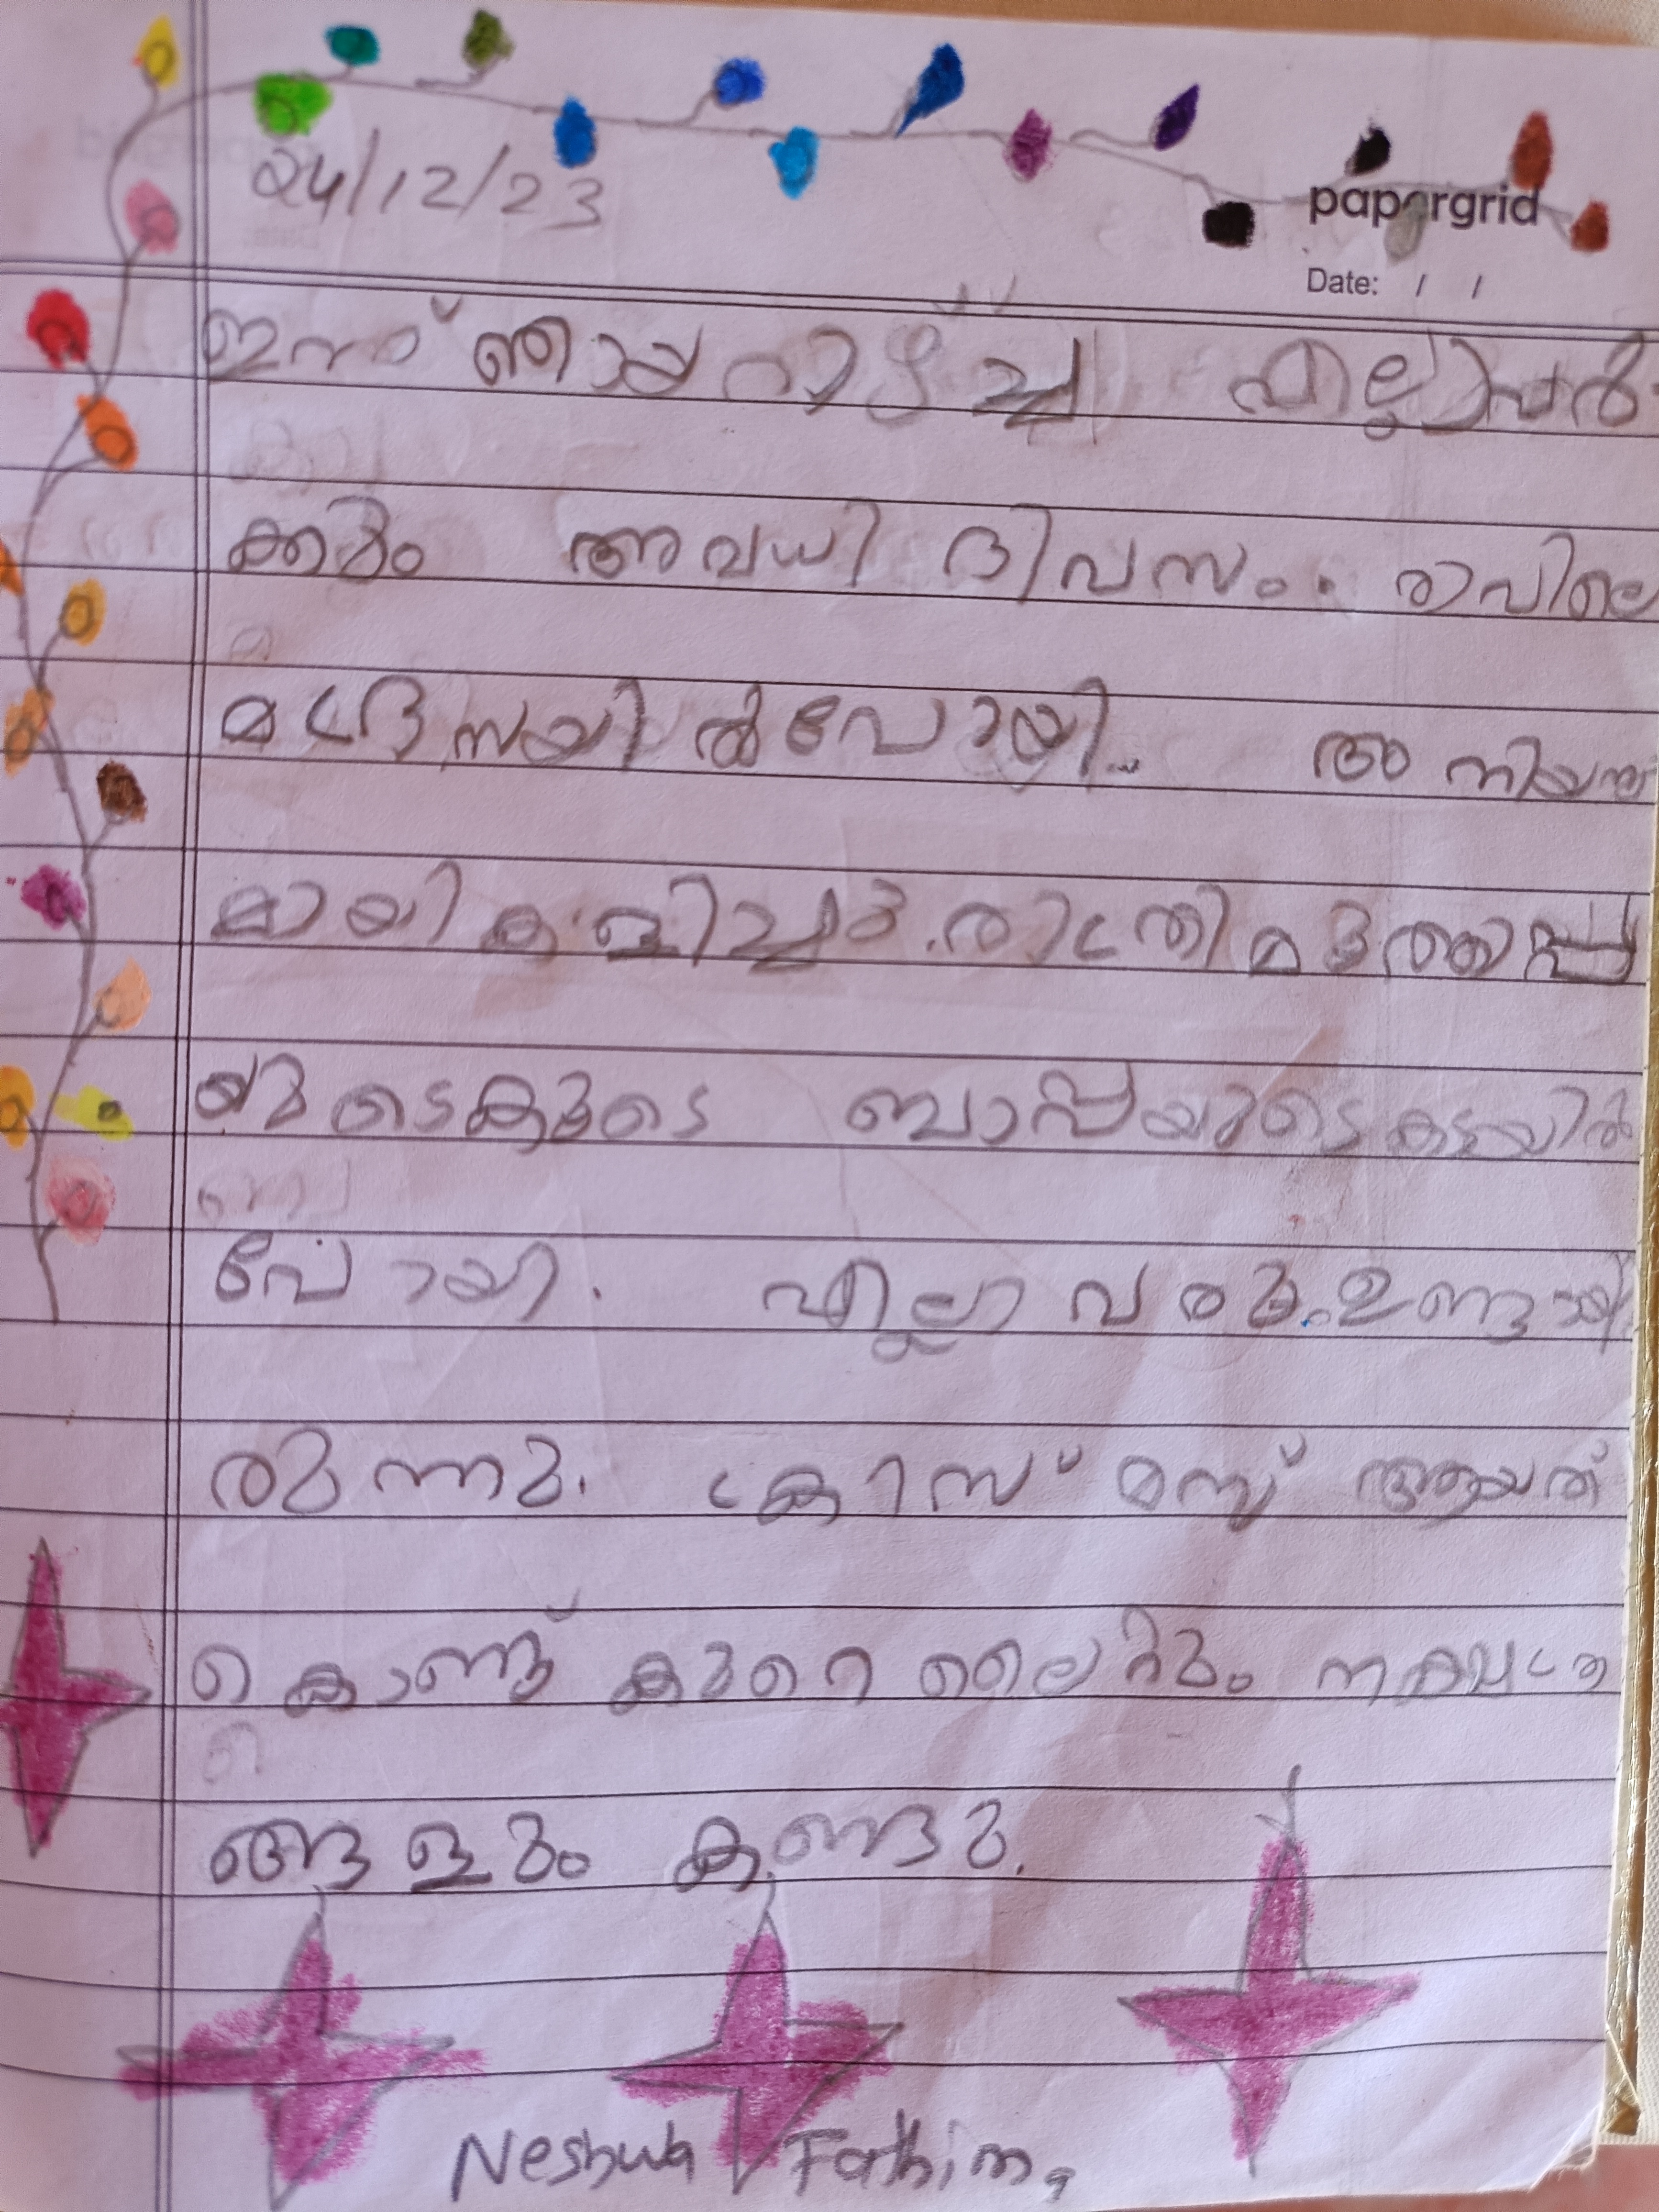 24/12/23
papergrid
Date: / /
ഇന്ന് ഞായറാഴ്ച്ച എല്ലാവർ
ക്കും അവധി ദിവസം. രാവിലെ
മദ്രസയിൽ പോയി. അനിയനു
മായി കളിച്ചു. രാത്രി മുത്താപ്പ
യുടെകൂടെ ബാപ്പയുടെ കടയിൽ
പോയി. എല്ലാവരും ഉണ്ടായി
രുന്നു. ക്രിസ്മസ് ആയത്
കൊണ്ട് കുറെ ലൈറ്റും നക്ഷത്ര
ങ്ങളും കണ്ടു.
Neshwa Fathima